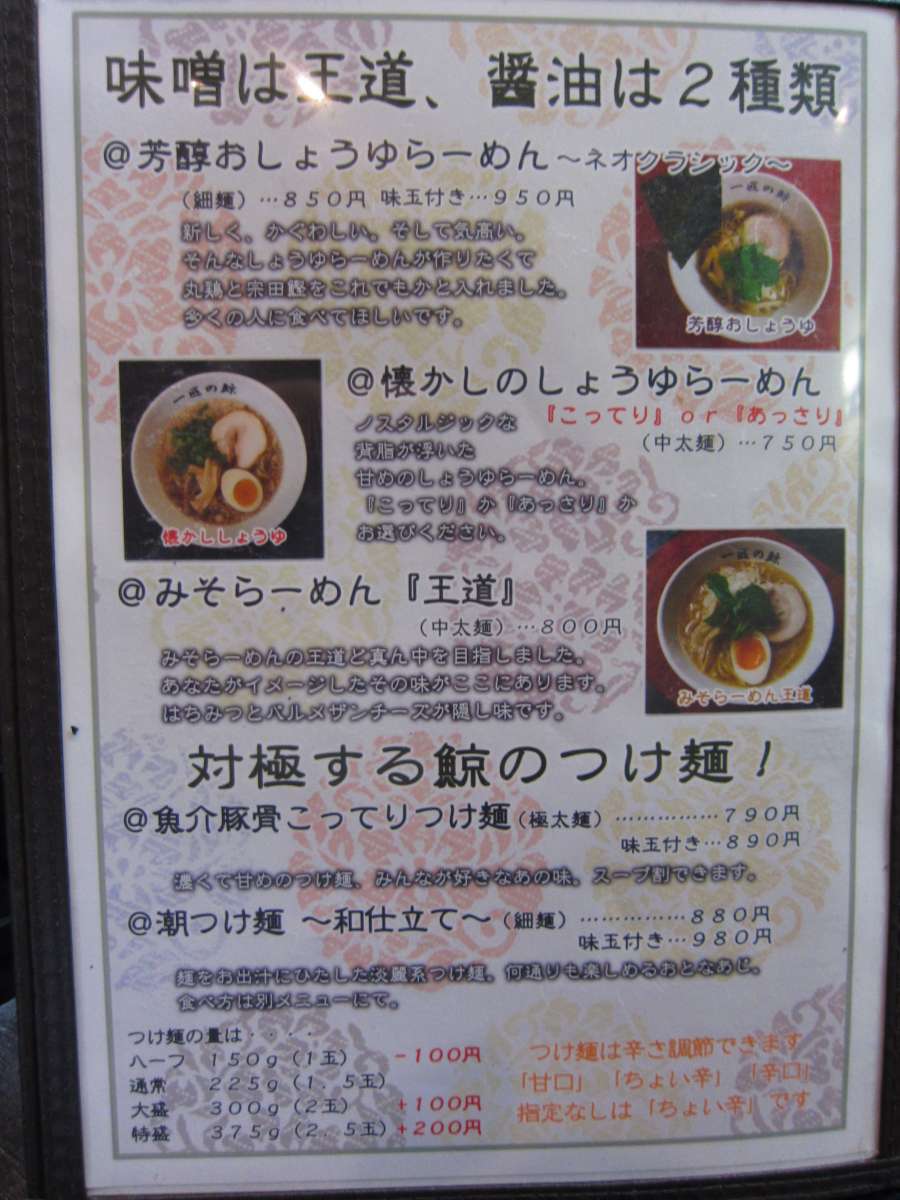 味噌は王道、醤油は２種類
＠芳醇おしょうゆらーめん ～ネオクラシック～
（細麺）…８５０円 味玉付き…９５０円
新しく、かぐわしい。そして気高い。
そんなしょうゆらーめんが作りたくて
丸鶏と宗田鰹をこれでもかと入れました。
多くの人に食べてほしいです。
一匹の鯨
芳醇おしょうゆ
＠懐かしのしょうゆらーめん
『こってり』ｏｒ『あっさり』
（中太麺）…７５０円
ノスタルジックな
背脂が浮いた
甘めのしょうゆらーめん。
『こってり』か『あっさり』か
お選びください。
一匹の鯨
懐かししょうゆ
＠みそらーめん『王道』
（中太麺）…８００円
みそらーめんの王道ど真ん中を目指しました。
あなたがイメージしたその味がここにあります。
はちみつとパルメザンチーズが隠し味です。
一匹の鯨
みそらーめん王道
対極する鯨のつけ麺！
＠魚介豚骨こってりつけ麺（極太麺）……………７９０円
味玉付き…８９０円
濃くて甘めのつけ麺、みんなが好きなあの味。スープ割できます。
＠潮つけ麺 ～和仕立て～（細麺）……………８８０円
味玉付き…９８０円
麺をお出汁にひたした淡麗系つけ麺。何通りも楽しめるおとなあじ。
食べ方は別メニューにて。
つけ麺の量は・・・・
ハーフ １５０ｇ（１玉） －１００円
通常 ２２５ｇ（１．５玉）
大盛 ３００ｇ（２玉） ＋１００円
特盛 ３７５ｇ（２．５玉）＋２００円
つけ麺は辛さ調節できます
「甘口」「ちょい辛」「辛口」
指定なしは「ちょい辛」です